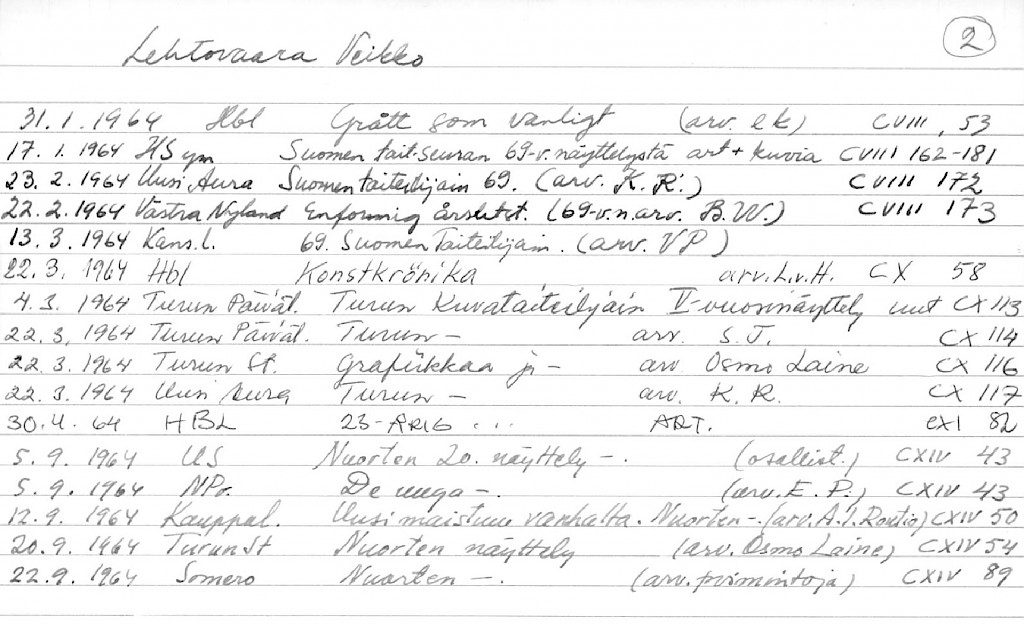 Lehtovaara Veikko 2
31.1.1964 Hbl Grått som vanligt (arv. ek) CVIII, 53
17.1.1964 HS ym Suomen tait.seuran 69-v.näyttelystä art + kuvia CVIII 162-181
23.2.1964 Uusi Aura Suomen taiteilijain 69. (arv. K.R.) CVIII 172
22.2.1964 Västra Nyland Enformig årsutst. (69-v.n.arv. B.W.) CVIII 173
13.3.1964 Kans.l. 69. Suomen Taiteilijain. (arv. VP)
22.3.1964 Hbl Konstkrönika arv.L.v.H. CX 58
4.3.1964 Turun Päiväl. Turun Kuvataiteilijain V-vuosinäyttely uut CX 113
22.3.1964 Turun Päiväl. Turun - arv. S.J. CX 114
22.3.1964 Turun St. Grafiikkaa ja - arv Osmo Laine CX 116
22.3.1964 Uusi Aura Turun - arv. K.R. CX 117
30.4.64 HBL 23-ÅRIG ... ART. CXI 82
5.9.1964 US Nuorten 20. näyttely -. (osallist.) CXIV 43
5.9.1964 NPr. De unga -. (arv. E.P.) CXIV 43
12.9.1964 Kauppal. Uusi maistuu vanhalta. Nuorten -. (arv. A.I.Routio) CXIV 50
20.9.1964 Turun St Nuorten näyttely (arv. Osmo Laine) CXIV 54
22.9.1964 Somero Nuorten -. (arv. poimintoja) CXIV 89